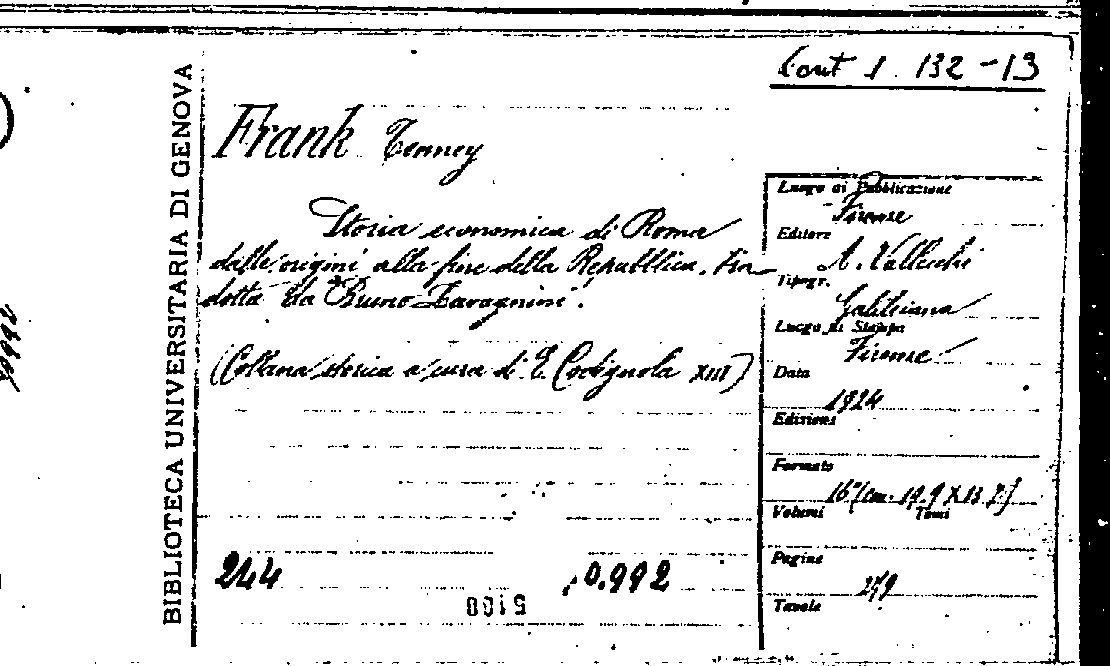 Cont 1. 132-13
BIBLIOTECA UNIVERSITARIA DI GENOVA
Frank Tenney
Storia economica di Roma
dalle origini alla fine della Repubblica. Tra-
dotta da Bruno Lavagnini.
(Collana storica a cura di E. Codignola XIII)
244
0.992
5100
Luogo di Pubblicazione
Firenze
Editore
A. Vallecchi
Tipogr.
Galileiana
Luogo di Stampa
Firenze
Data
1924
Edizione
Formato
16° (cm. 19.9 X 13.7)
Volumi Tomi
Pagine
279
Tavole